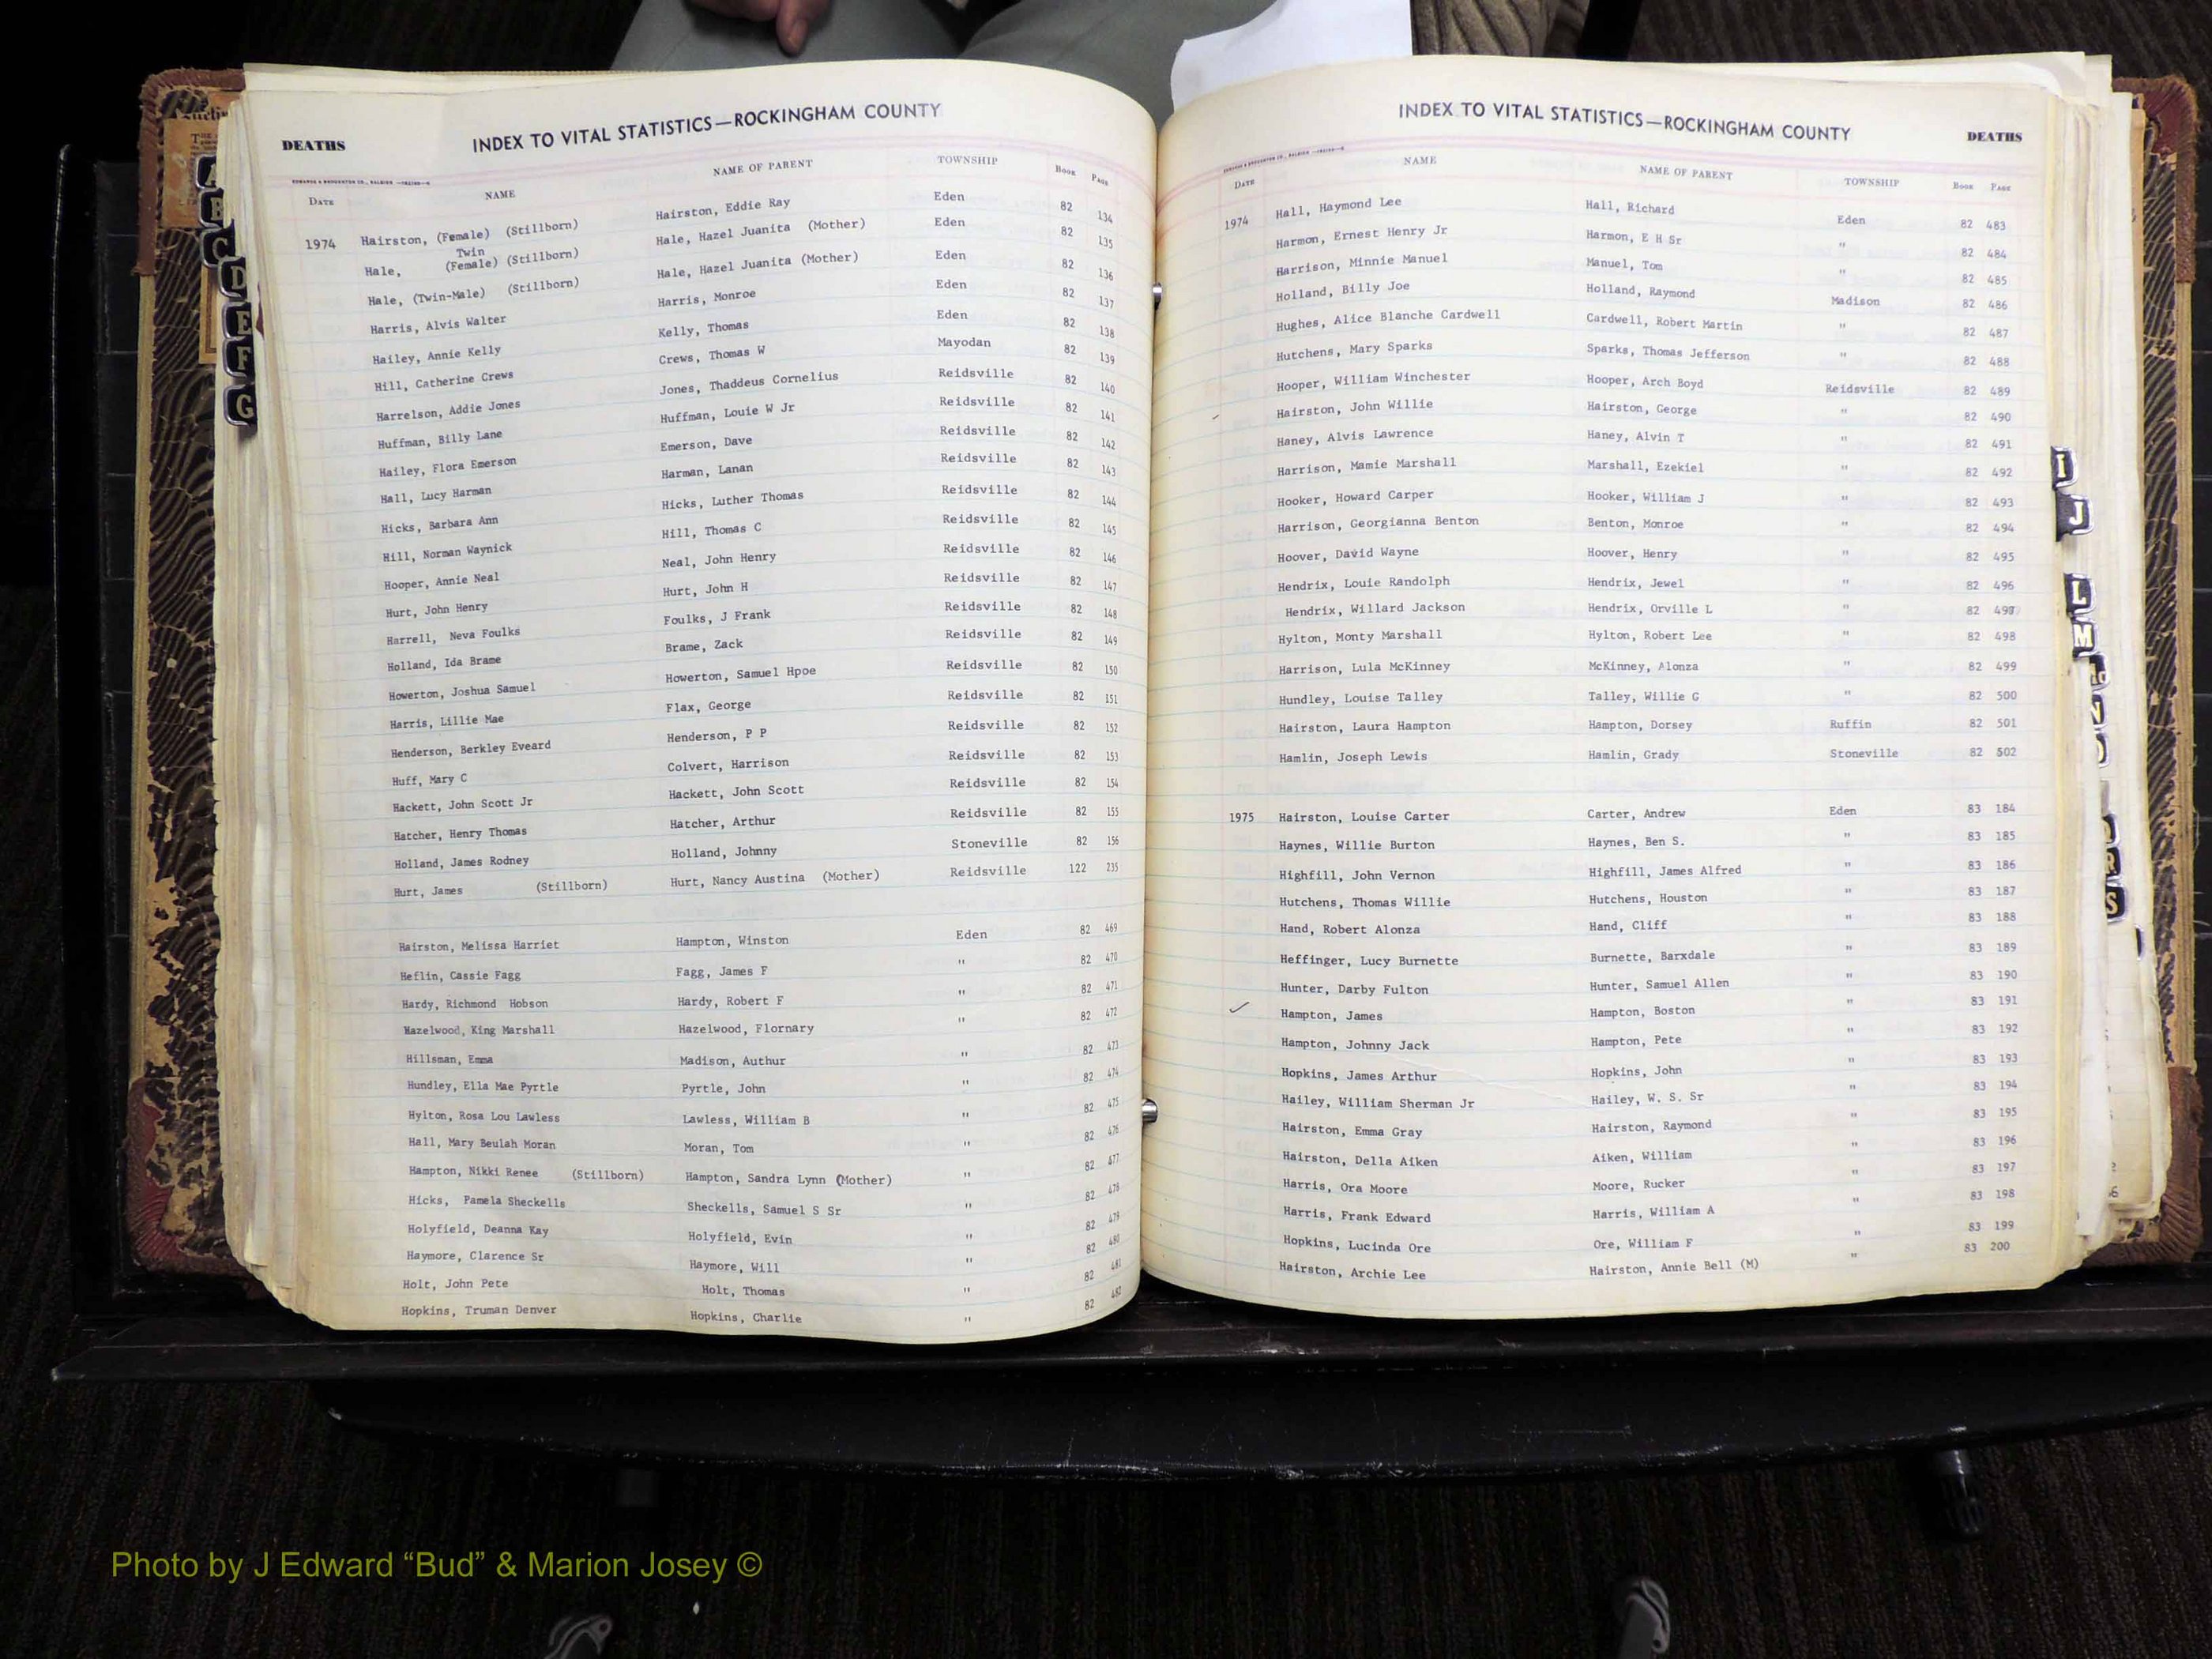 DEATHS
INDEX TO VITAL STATISTICS—ROCKINGHAM COUNTY
DATE NAME NAME OF PARENT TOWNSHIP BOOK PAGE
1974 Hairston, (Female) (Stillborn) Hairston, Eddie Ray Eden 82 134
Twin
Hale, (Female) (Stillborn) Hale, Hazel Juanita (Mother) Eden 82 135
Hale, (Twin-Male) (Stillborn) Hale, Hazel Juanita (Mother) Eden 82 136
Harris, Alvis Walter Harris, Monroe Eden 82 137
Hailey, Annie Kelly Kelly, Thomas Eden 82 138
Hill, Catherine Crews Crews, Thomas W Mayodan 82 139
Harrelson, Addie Jones Jones, Thaddeus Cornelius Reidsville 82 140
Huffman, Billy Lane Huffman, Louie W Jr Reidsville 82 141
Hailey, Flora Emerson Emerson, Dave Reidsville 82 142
Hall, Lucy Harman Harman, Lanan Reidsville 82 143
Hicks, Barbara Ann Hicks, Luther Thomas Reidsville 82 144
Hill, Norman Waynick Hill, Thomas C Reidsville 82 145
Hooper, Annie Neal Neal, John Henry Reidsville 82 146
Hurt, John Henry Hurt, John H Reidsville 82 147
Harrell, Neva Foulks Foulks, J Frank Reidsville 82 148
Holland, Ida Brame Brame, Zack Reidsville 82 149
Howerton, Joshua Samuel Howerton, Samuel Hpoe Reidsville 82 150
Harris, Lillie Mae Flax, George Reidsville 82 151
Henderson, Berkley Eveard Henderson, P P Reidsville 82 152
Huff, Mary C Colvert, Harrison Reidsville 82 153
Hackett, John Scott Jr Hackett, John Scott Reidsville 82 154
Hatcher, Henry Thomas Hatcher, Arthur Reidsville 82 155
Holland, James Rodney Holland, Johnny Stoneville 82 156
Hurt, James (Stillborn) Hurt, Nancy Austina (Mother) Reidsville 122 235
Hairston, Melissa Harriet Hampton, Winston Eden 82 469
Heflin, Cassie Fagg Fagg, James F " 82 470
Hardy, Richmond Hobson Hardy, Robert F " 82 471
Hazelwood, King Marshall Hazelwood, Flornary " 82 472
Hillsman, Emma Madison, Authur " 82 473
Hundley, Ella Mae Pyrtle Pyrtle, John " 82 474
Hylton, Rosa Lou Lawless Lawless, William B " 82 475
Hall, Mary Beulah Moran Moran, Tom " 82 476
Hampton, Nikki Renee (Stillborn) Hampton, Sandra Lynn (Mother) " 82 477
Hicks, Pamela Sheckells Sheckells, Samuel S Sr " 82 478
Holyfield, Deanna Kay Holyfield, Evin " 82 479
Haymore, Clarence Sr Haymore, Will " 82 480
Holt, John Pete Holt, Thomas " 82 481
Hopkins, Truman Denver Hopkins, Charlie " 82 482
INDEX TO VITAL STATISTICS—ROCKINGHAM COUNTY
DEATHS
DATE NAME NAME OF PARENT TOWNSHIP BOOK PAGE
1974 Hall, Haymond Lee Hall, Richard Eden 82 483
Harmon, Ernest Henry Jr Harmon, E H Sr " 82 484
Harrison, Minnie Manuel Manuel, Tom " 82 485
Holland, Billy Joe Holland, Raymond Madison 82 486
Hughes, Alice Blanche Cardwell Cardwell, Robert Martin " 82 487
Hutchens, Mary Sparks Sparks, Thomas Jefferson " 82 488
Hooper, William Winchester Hooper, Arch Boyd Reidsville 82 489
Hairston, John Willie Hairston, George " 82 490
Haney, Alvis Lawrence Haney, Alvin T " 82 491
Harrison, Mamie Marshall Marshall, Ezekiel " 82 492
Hooker, Howard Carper Hooker, William J " 82 493
Harrison, Georgianna Benton Benton, Monroe " 82 494
Hoover, David Wayne Hoover, Henry " 82 495
Hendrix, Louie Randolph Hendrix, Jewel " 82 496
Hendrix, Willard Jackson Hendrix, Orville L " 82 497
Hylton, Monty Marshall Hylton, Robert Lee " 82 498
Harrison, Lula McKinney McKinney, Alonza " 82 499
Hundley, Louise Talley Talley, Willie G " 82 500
Hairston, Laura Hampton Hampton, Dorsey Ruffin 82 501
Hamlin, Joseph Lewis Hamlin, Grady Stoneville 82 502
1975 Hairston, Louise Carter Carter, Andrew Eden 83 184
Haynes, Willie Burton Haynes, Ben S. " 83 185
Highfill, John Vernon Highfill, James Alfred " 83 186
Hutchens, Thomas Willie Hutchens, Houston " 83 187
Hand, Robert Alonza Hand, Cliff " 83 188
Heffinger, Lucy Burnette Burnette, Barxdale " 83 189
Hunter, Darby Fulton Hunter, Samuel Allen " 83 190
Hampton, James Hampton, Boston " 83 191
Hampton, Johnny Jack Hampton, Pete " 83 192
Hopkins, James Arthur Hopkins, John " 83 193
Hailey, William Sherman Jr Hailey, W. S. Sr " 83 194
Hairston, Emma Gray Hairston, Raymond " 83 195
Hairston, Della Aiken Aiken, William " 83 196
Harris, Ora Moore Moore, Rucker " 83 197
Harris, Frank Edward Harris, William A " 83 198
Hopkins, Lucinda Ore Ore, William F " 83 199
Hairston, Archie Lee Hairston, Annie Bell (M) " 83 200
A
B
C
D
E
F
G
I
J
L
M
R
S
Photo by J Edward “Bud” & Marion Josey ©